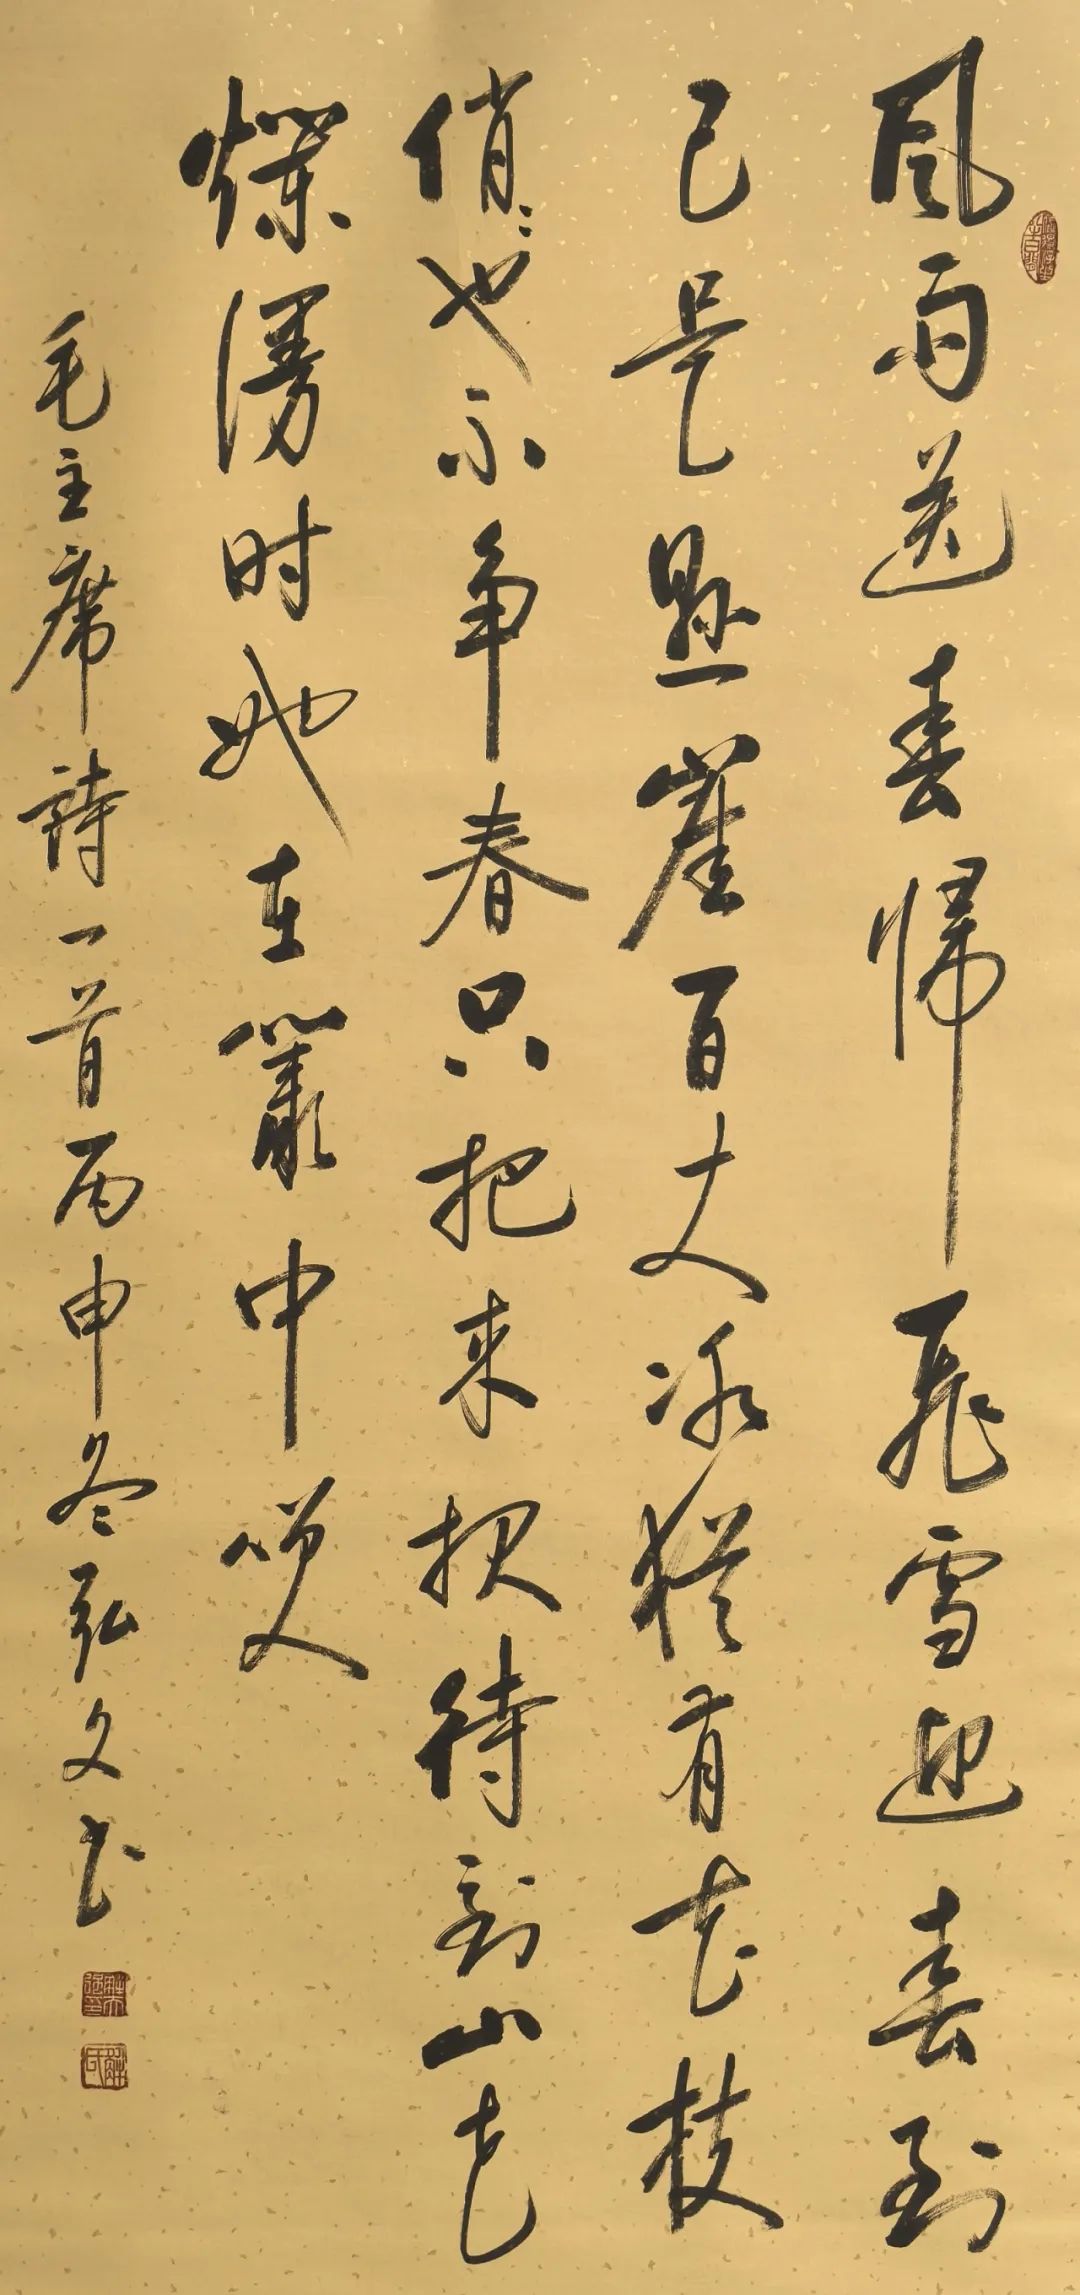 風雨送春歸飛雪迎春到
已是懸崖百丈冰猶有花枝
俏〻也不争春只把来报待到山花
爛漫时她在叢中笑
毛主席詩一首丙申冬弘文书